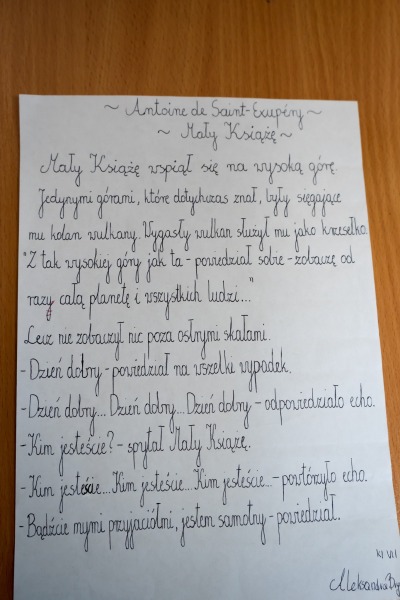 ~ Antoine de Saint-Exupéry ~
~ Mały Książę ~
Mały Książę wspiął się na wysoką górę.
Jedynymi górami, które dotychczas znał, były sięgające
mu kolan wulkany. Wygasły wulkan służył mu jako krzesełko.
"Z tak wysokiej góry jak ta - powiedział sobie - zobaczę od
razu całą planetę i wszystkich ludzi..."
Lecz nie zobaczył nic poza ostrymi skałami.
- Dzień dobry - powiedział na wszelki wypadek.
- Dzień dobry... Dzień dobry... Dzień dobry - odpowiedziało echo.
- Kim jesteście? - spytał Mały Książę.
- Kim jesteście... Kim jesteście... Kim jesteście... - powtórzyło echo.
- Bądźcie mymi przyjaciółmi, jestem samotny - powiedział.
kl VII
Aleksandra